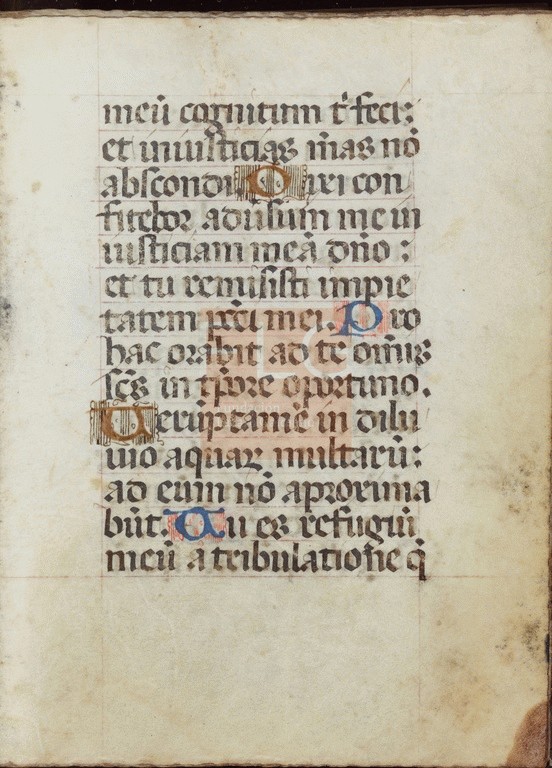 meū cognitum t̓ feci:
et iniusticias m̄as nō
abscondi. Dixi con
fitebor adūsum me in
iusticiam meā dn̄o:
et tu remisisti impie
tatem pc̄ci mei. Pro
hac orabit ad te om̄is
sc̄s in tp̄ore oportuno.
Uerūptamē in dilu
uio aquaꝝ multarū:
ad eum nō aproxima
būt. Tu es refugiū
meū a tribulatiōe q̄